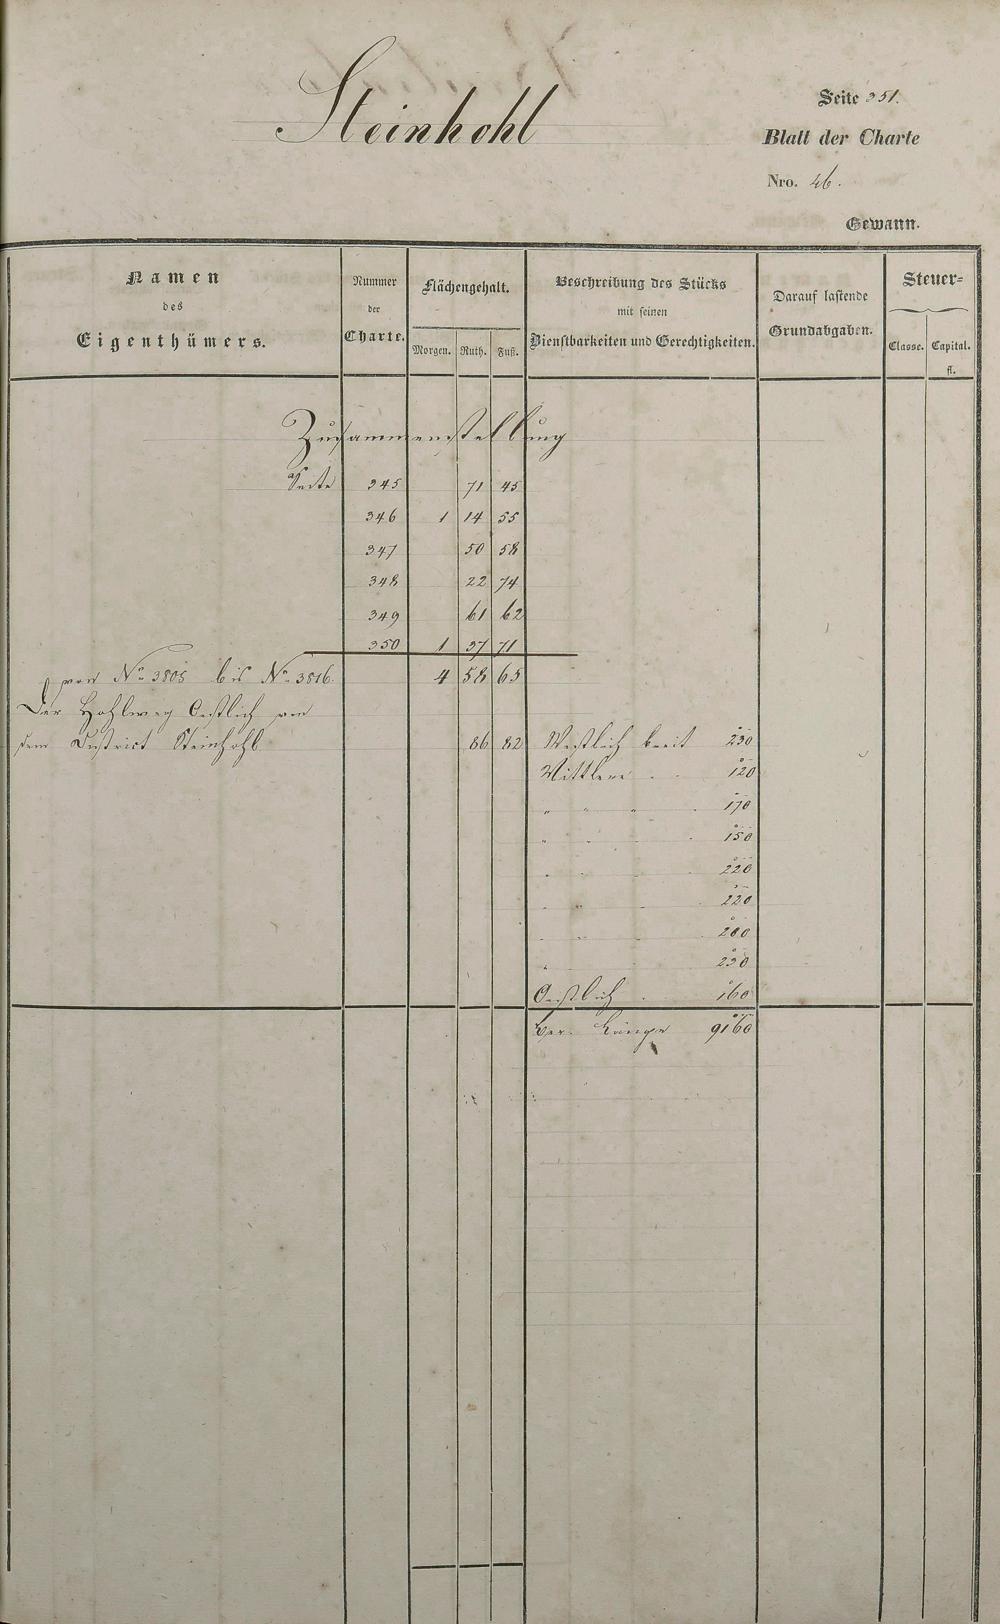 Steinhohl
Seite 351.
Blatt der Charte
Nro. 46.
Gewann.
Namen
des
Eigenthümers.
Nummer
der
Charte.
Flächengehalt.
Morgen. Ruth. Fuß.
Beschreibung des Stücks
mit seinen
Dienstbarkeiten und Gerechtigkeiten.
Darauf lastende
Grundabgaben.
Steuer=
Classe. Capital.
fl.
Zusammenstellung
Seite 345 71 45
346 1 14 55
347 50 58
348 22 74
349 61 62
350 1 37 71
von No 3805 bis No 3816. 4 58 65
Der Hohlweg Oestlich von
dem District Steinhohl 86 82 Westlich breit 230
Mittlere 120
" " " 170
" " 150
" 220
" " 220
" 200
" 230
Oestlich 160
Länge 9160